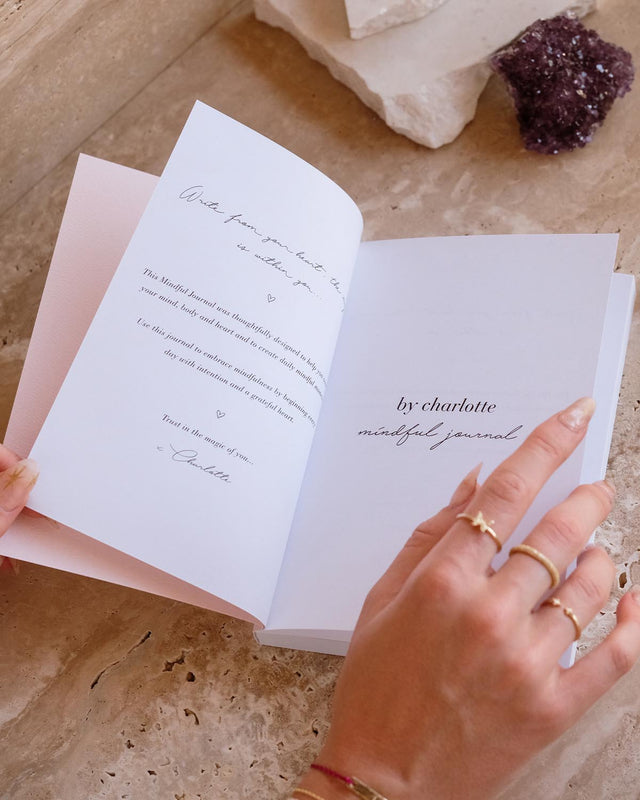 Write from your heart, the
is within you...
This Mindful Journal was thoughtfully designed to help you
your mind, body and heart and to create daily mindful
Use this journal to embrace mindfulness by beginning every
day with intention and a grateful heart.
Trust in the magic of you...
Charlotte
by charlotte
mindful journal